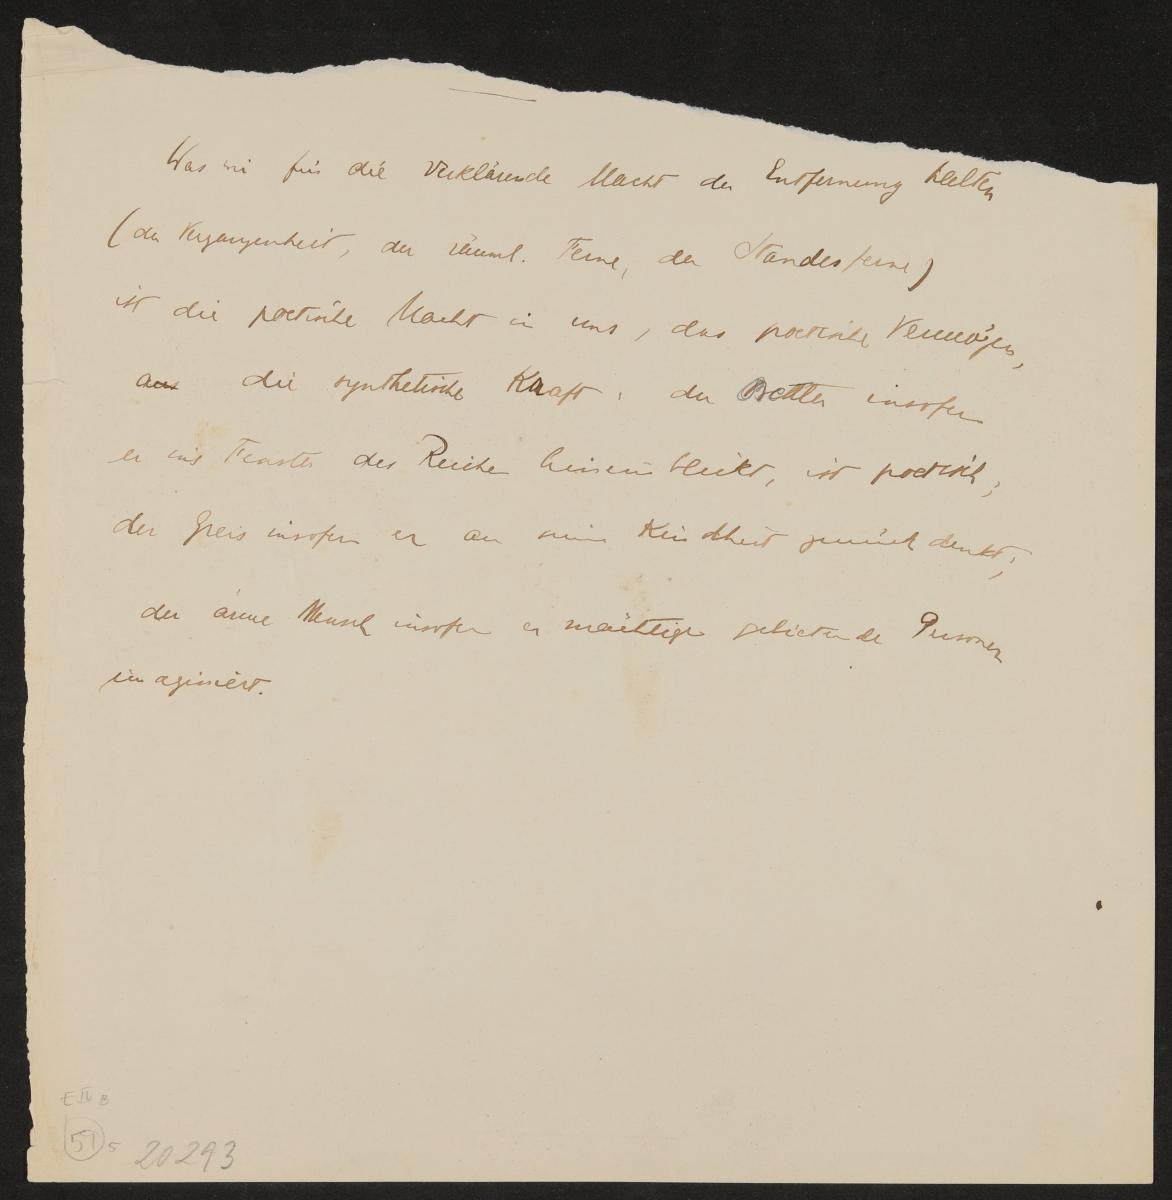 Was wir für die verklärende Macht der Entfernung halten
(der Vergangenheit, der räuml. Ferne, der Standesferne)
ist die poetische Macht in uns, das poetische Vermögen,
die synthetische Kraft: der Bettler insofern
er ins Fenster des Reichen hineinblickt, ist poetisch;
der Greis insofern er an seine Kindheit zurückdenkt;
der arme Mensch insofern er mächtige gebietende Personen
imaginiert.
E IV B
51 5 20293